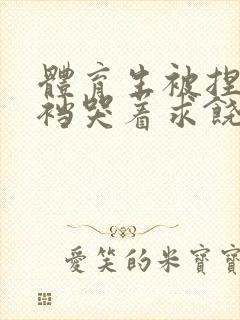 體育生被捏
襠哭着求饒
愛笑的米寶寶